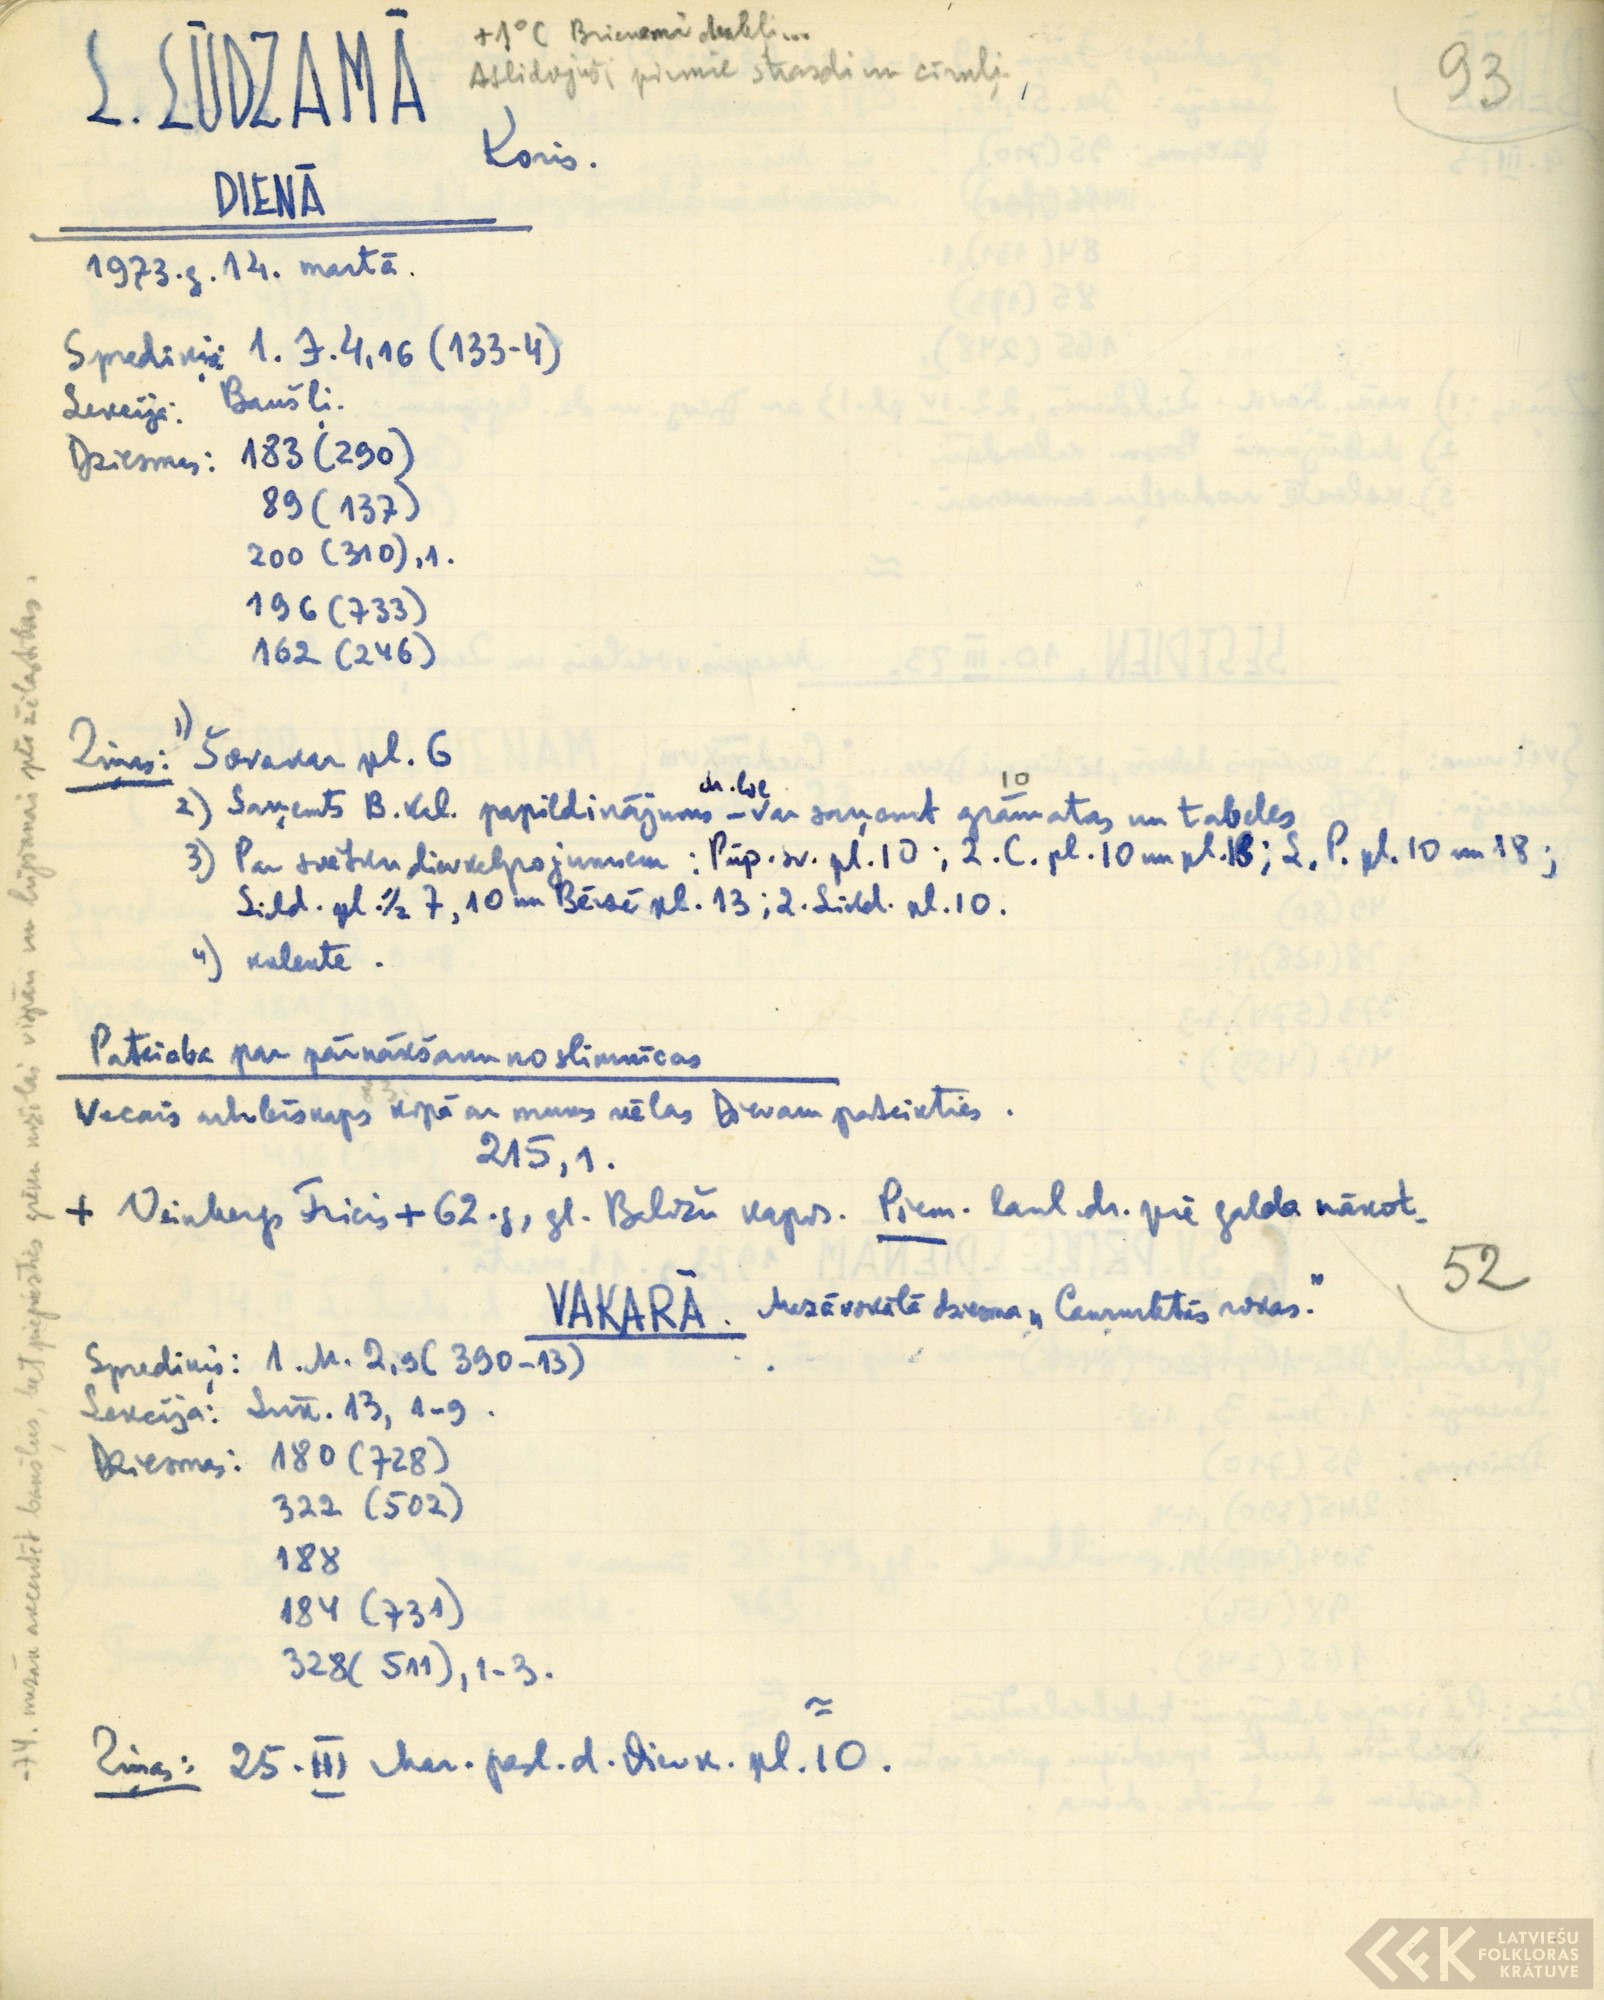 L. LŪDZAMĀ
+1°C Brienamā dubļi...
Atlidojuši pirmie strazdi un cīruļi.
93
Koris.
DIENĀ
1973.g. 14. martā.
Sprediķis: 1. J. 4,16 (133-4)
Lekcija: Baušļi.
Dziesmas: 183 (290)
89 (137)
200 (310), 1.
196 (733)
162 (246)
Ziņas: 1) Šovakar pl. 6
2) Saņemts B. kal. papildinājums – var saņemt grāmatas un tabeles
10
3) Par svētku dievkalpojumiem: Pūp. sv. pl. 10; Z. C. pl. 10 un pl. 18; L. P. pl. 10 un 18;
Lield. pl. ½ 7, 10 un Bērzē pl. 13; 2. Lield. pl. 10.
4) kolekte.
Pateicība par pārnākšanu no slimnīcas
Vecais arhibīskaps kopā ar mums vēlas Dievam pateikties.
215, 1.
+ Veinbergs Fricis + 62.g, gl. kapos. Piem. laul. dr. pie galda nākot.
52
VAKARĀ. Mezāvokālā dziesma „Caururbtās rokas."
Sprediķis: 1. M. 2,9 (390-13)
Lekcija: Lūk. 13, 1-9.
Dziesmas: 180 (728)
322 (502)
188
184 (731)
328 (511), 1-3.
≈
Ziņas: 25. III Mar. pasl. d. Dievk. pl. 10.
-74. vairāk akcentēt baušļus, bet piepiesties grēku nožēlai vispār un lūgšanai pēc žēlastības.
LATVIEŠU
FOLKLORAS
KRĀTUVE